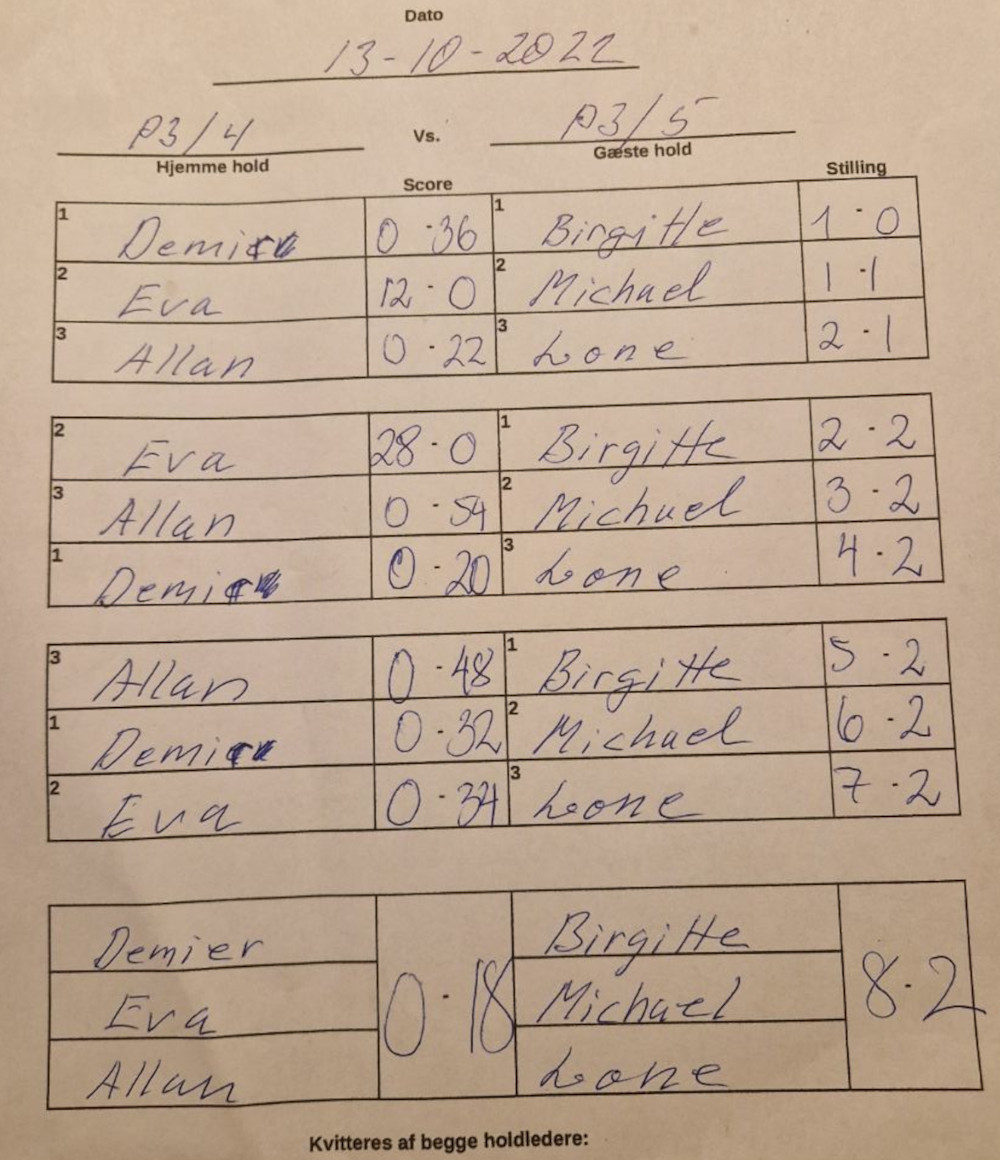 Dato
13-10-2022
P3/4 Vs. P3/5
Hjemme hold Gæste hold
Score Stilling
1 Demier 0-36 1 Birgitte 1-0
2 Eva 12-0 2 Michael 1-1
3 Allan 0-22 3 Lone 2-1
2 Eva 28-0 1 Birgitte 2-2
3 Allan 0-54 2 Michael 3-2
1 Demier 0-20 3 Lone 4-2
3 Allan 0-48 1 Birgitte 5-2
1 Demier 0-32 2 Michael 6-2
2 Eva 0-34 3 Lone 7-2
Demier Birgitte
Eva 0-18 Michael 8-2
Allan Lone
Kvitteres af begge holdledere: